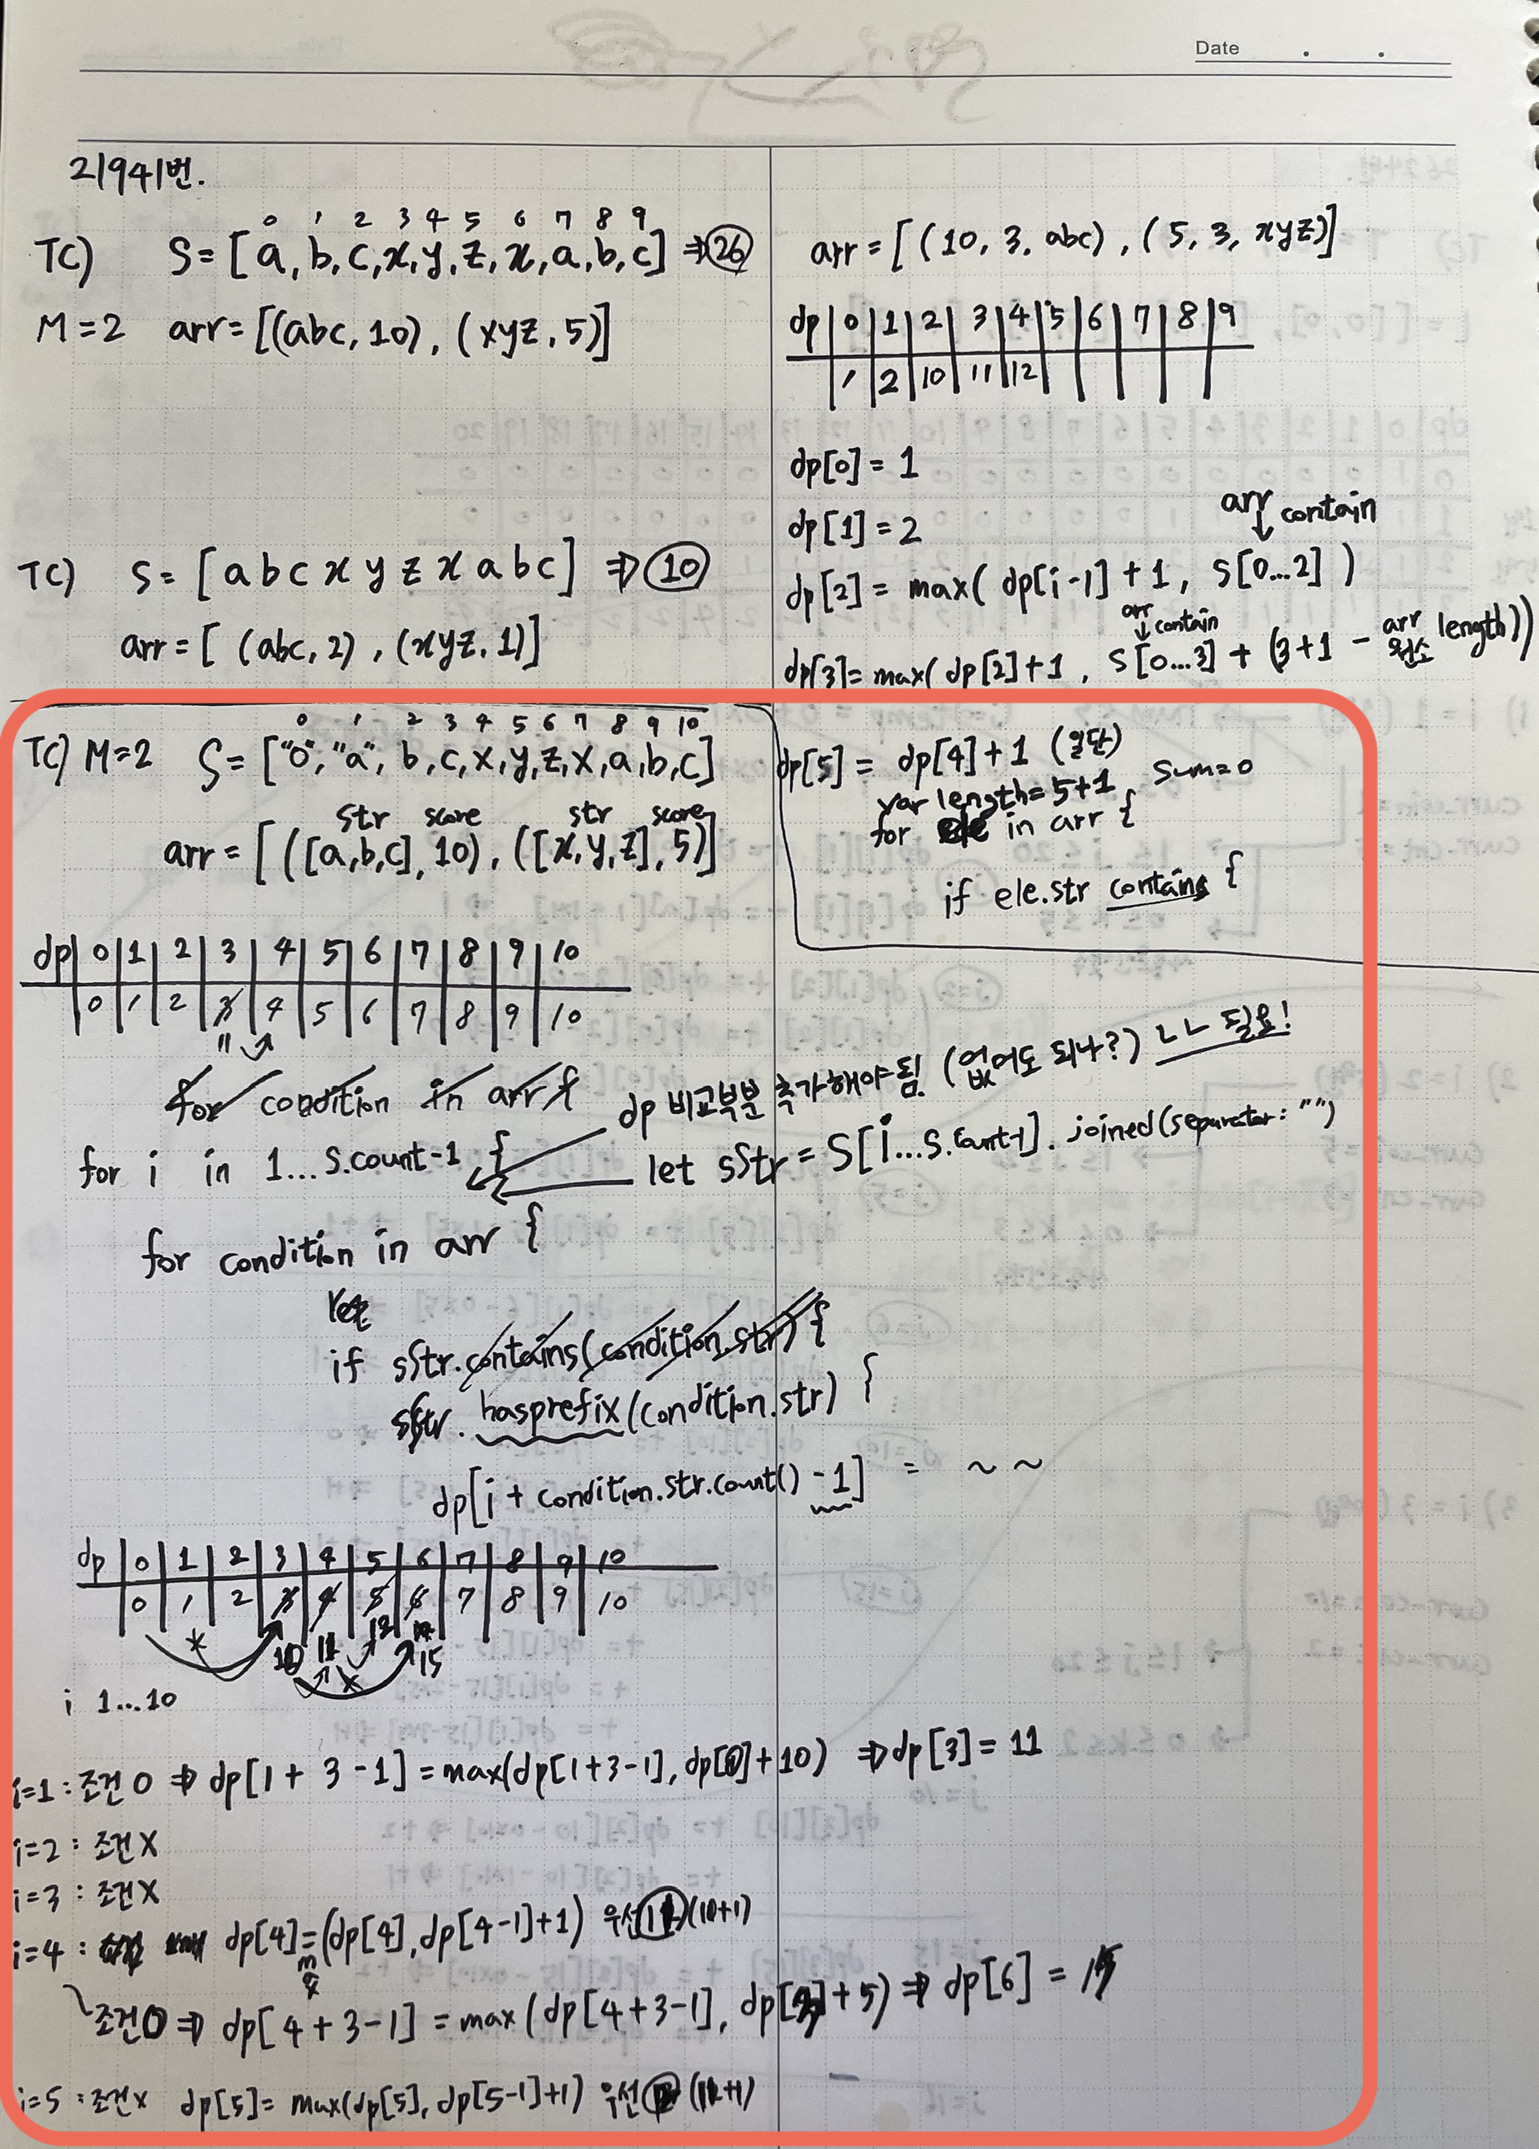 Date . .
21941번.
0 1 2 3 4 5 6 7 8 9
TC) S = [a, b, c, x, y, z, x, a, b, c] ⇒ 26
M=2 arr = [(abc, 10), (xyz, 5)]
TC) S = [a b c x y z x a b c] ⇒ 10
arr = [ (abc, 2), (xyz, 1)]
arr = [ (10, 3, abc), (5, 3, xyz)]
dp 0 1 2 3 4 5 6 7 8 9
1 2 10 11 12
dp[0] = 1
dp[1] = 2
arr contain
dp[2] = max( dp[i-1] + 1, S[0...2] )
arr contain
dp[3] = max( dp[2]+1, S[0...3] + (3+1 - arr 원소 length))
0 1 2 3 4 5 6 7 8 9 10
TC) M=2 S = ["0", "a", b, c, x, y, z, x, a, b, c]
str score str score
arr = [ ([a,b,c], 10), ([x,y,z], 5)]
dp[5] = dp[4]+1 (일단)
var length = 5+1 sum=0
for ele in arr {
if ele.str contains {
dp 0 1 2 3 4 5 6 7 8 9 10
0 1 2 3 4 5 6 7 8 9 10
11
for condition in arr {
dp 비교부분 추가해야됨. (없어도 되나?) ㄴㄴ 필요!
for i in 1...S.count-1 {
let sStr = S[i...S.count-1].joined(separator: "")
for condition in arr {
let
if sStr.contains(condition.str) {
sStr.hasprefix(condition.str) {
dp[i + condition.str.count() - 1] = ~ ~
dp 0 1 2 3 4 5 6 7 8 9 10
0 1 2 3 4 5 6 7 8 9 10
10 11 12 15
i 1...10
i=1 : 조건 O ⇒ dp[1 + 3 - 1] = max(dp[1+3-1], dp[0]+10) ⇒ dp[3] = 11
i=2 : 조건 X
i=3 : 조건 X
i=4 : dp[4] = (dp[4], dp[4-1]+1) 우선 (10+1)
조건 O ⇒ dp[4+3-1] = max(dp[4+3-1], dp[3]+5) ⇒ dp[6] = 15
i=5 : 조건 X dp[5] = max(dp[5], dp[5-1]+1) 우선 (11+1)